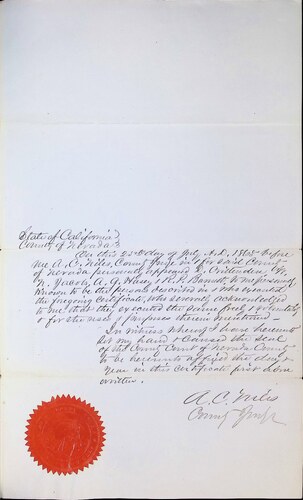 State of California }
County of Nevada }
On this 25th day of July A.D. 1865 before
me A. C. Niles, County Judge in & for said County
of Nevada personally appeared D. Crittenden, W.
N. A. G. Hanly & R. L. to me personally
known to be the persons described in & who executed
the foregoing Certificate, who severally acknowledged
to me that they executed the same freely & voluntarily
& for the uses & purposes therein mentioned —
In witness whereof I have hereunto
set my hand & caused the seal
of the County Court of Nevada County
to be hereunto affixed the day &
Year in this Certificate first above
written.
A. C. Niles
County Judge